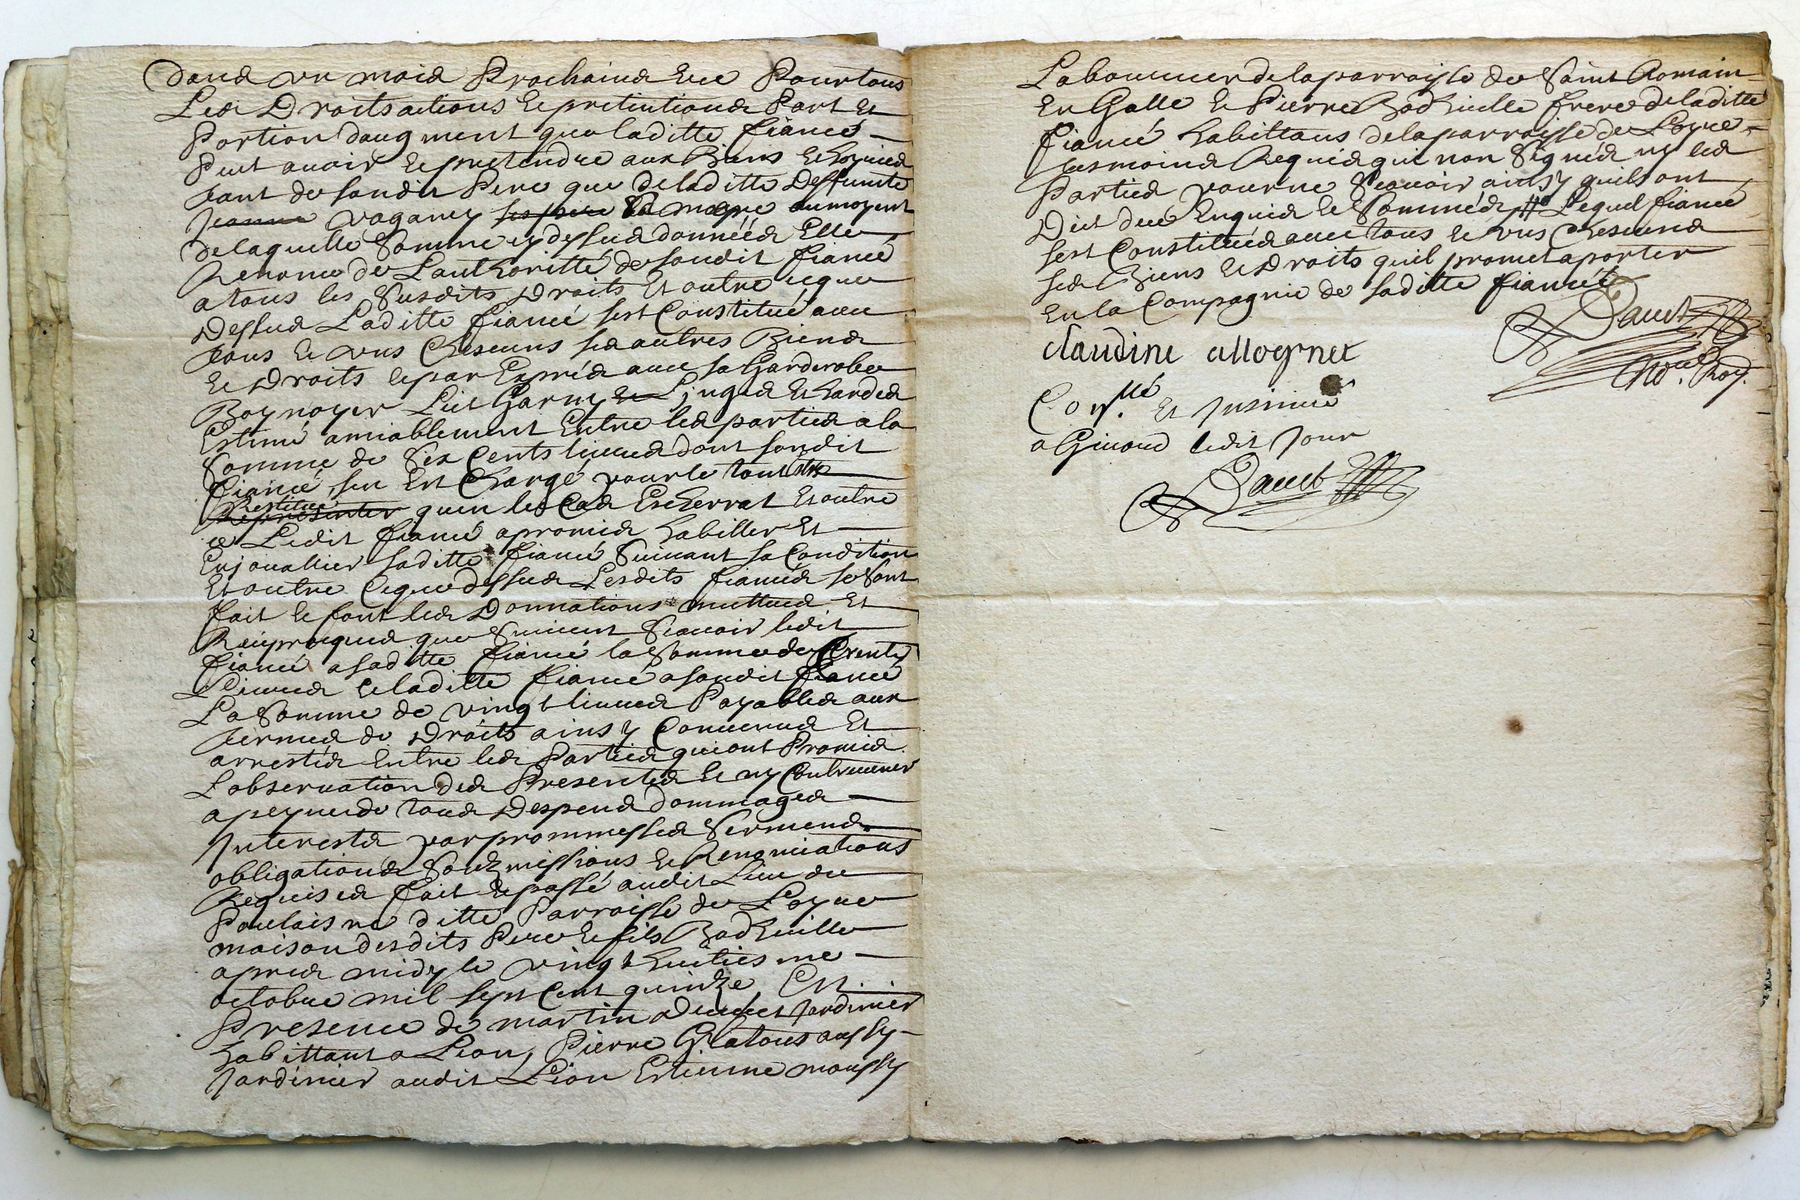 dans un mois Prochains Et ce Pour tous
Les Droits actions Et pretentions Part Et
Portion daugment que laditte fiancé
Peut avoir Et pretendre aux Biens Et hoyries
tant de sondit Pere que de laditte Deffunte
Jeanne vaganey sa mere au moyent
de laquelle Somme cy dessus donnéés Elle
Renonce de Lauthoritté de sondit fiancé
a tous les Susdits Droits Et outre ce que
Dessus Laditte fiancé sest Constitué avec
tous Et uns Chescuns ses autres Biens
Et Droits Et par Exprés avec sa Garderobe
Boynoyer Lict Garny Linges Et hardes
Estimé amiablement Entre les parties a la
Somme de Six Cents livres dont sondit
fiancé sen Est Chargé pour le tout Estre
Restitué quen le Cas Escherrat Et outre
ce Ledit fiancé a promis habiller Et
Enjoualler saditte fiancé Suivant sa Condition
Et outre Ce que dessus Lesdits fiancés se sont
fait Et font les Donnations muttues Et
Reciproques que Suivent Scavoir ledit
fiancé a saditte fiancé la Somme de trente
Livres Et laditte fiancé a sondit fiancé
La Somme de vingt livres Payables aux
termes de Droits ainsy Convenus Et
arrestés Entre les Parties qui ont Promis
Lobservation des Presentes Et ny Contrevenir
a peyne de tous Despens dommages
Interests par prommesses Serments
obligations Soubmissions Et Renonciations
Requises fait Et passé audit Lieu de
Poulaisne ditte Parroisse de Loyre
maison desdits Pere Et fils Badheuille
apres midy le vingt huities me
octobre mil sept Cent quindze En
Presence de martin Jardinier
habittant a Lion, Pierre Glatous aussy
Jardinier audit Lion Estienne moussy
Laboureur de la parroisse de Saint Romain
En Galle Et Pierre Badheuille frere de laditte
fiancé habittans de la parroisse de Loyre
tesmoins Requis qui non Signés ny les
Parties pour ne Scavoir ainsy quils ont
Dict de ce Enquis Et Sommés # Lequel fiancé
sest Constitués avec tous Et uns Chescuns
ses Biens Et Droits quil promet aporter
En la Compagnie de saditte fiancéé
Dauet
claudine allognet
No.re Roy.
Con.llé Et Insinué
a Giuord ledit Jour
Dauet